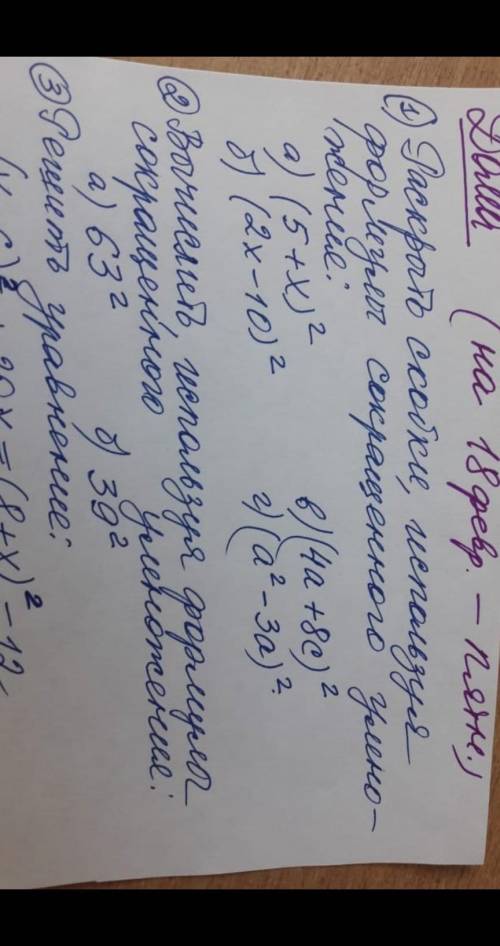 Дома (на 18 февр. – пятн.)
① Раскрыть скобки, используя
формулы сокращенного умно-
жения:
а) (5+x)² в) (4a+8c)²
б) (2x-10)² г) (a²-3a)².
② Вычислить используя формулы
сокращенного умножения:
а) 63² б) 39²
③ Решить уравнение:
)² + 20x = (8+x)² - 12